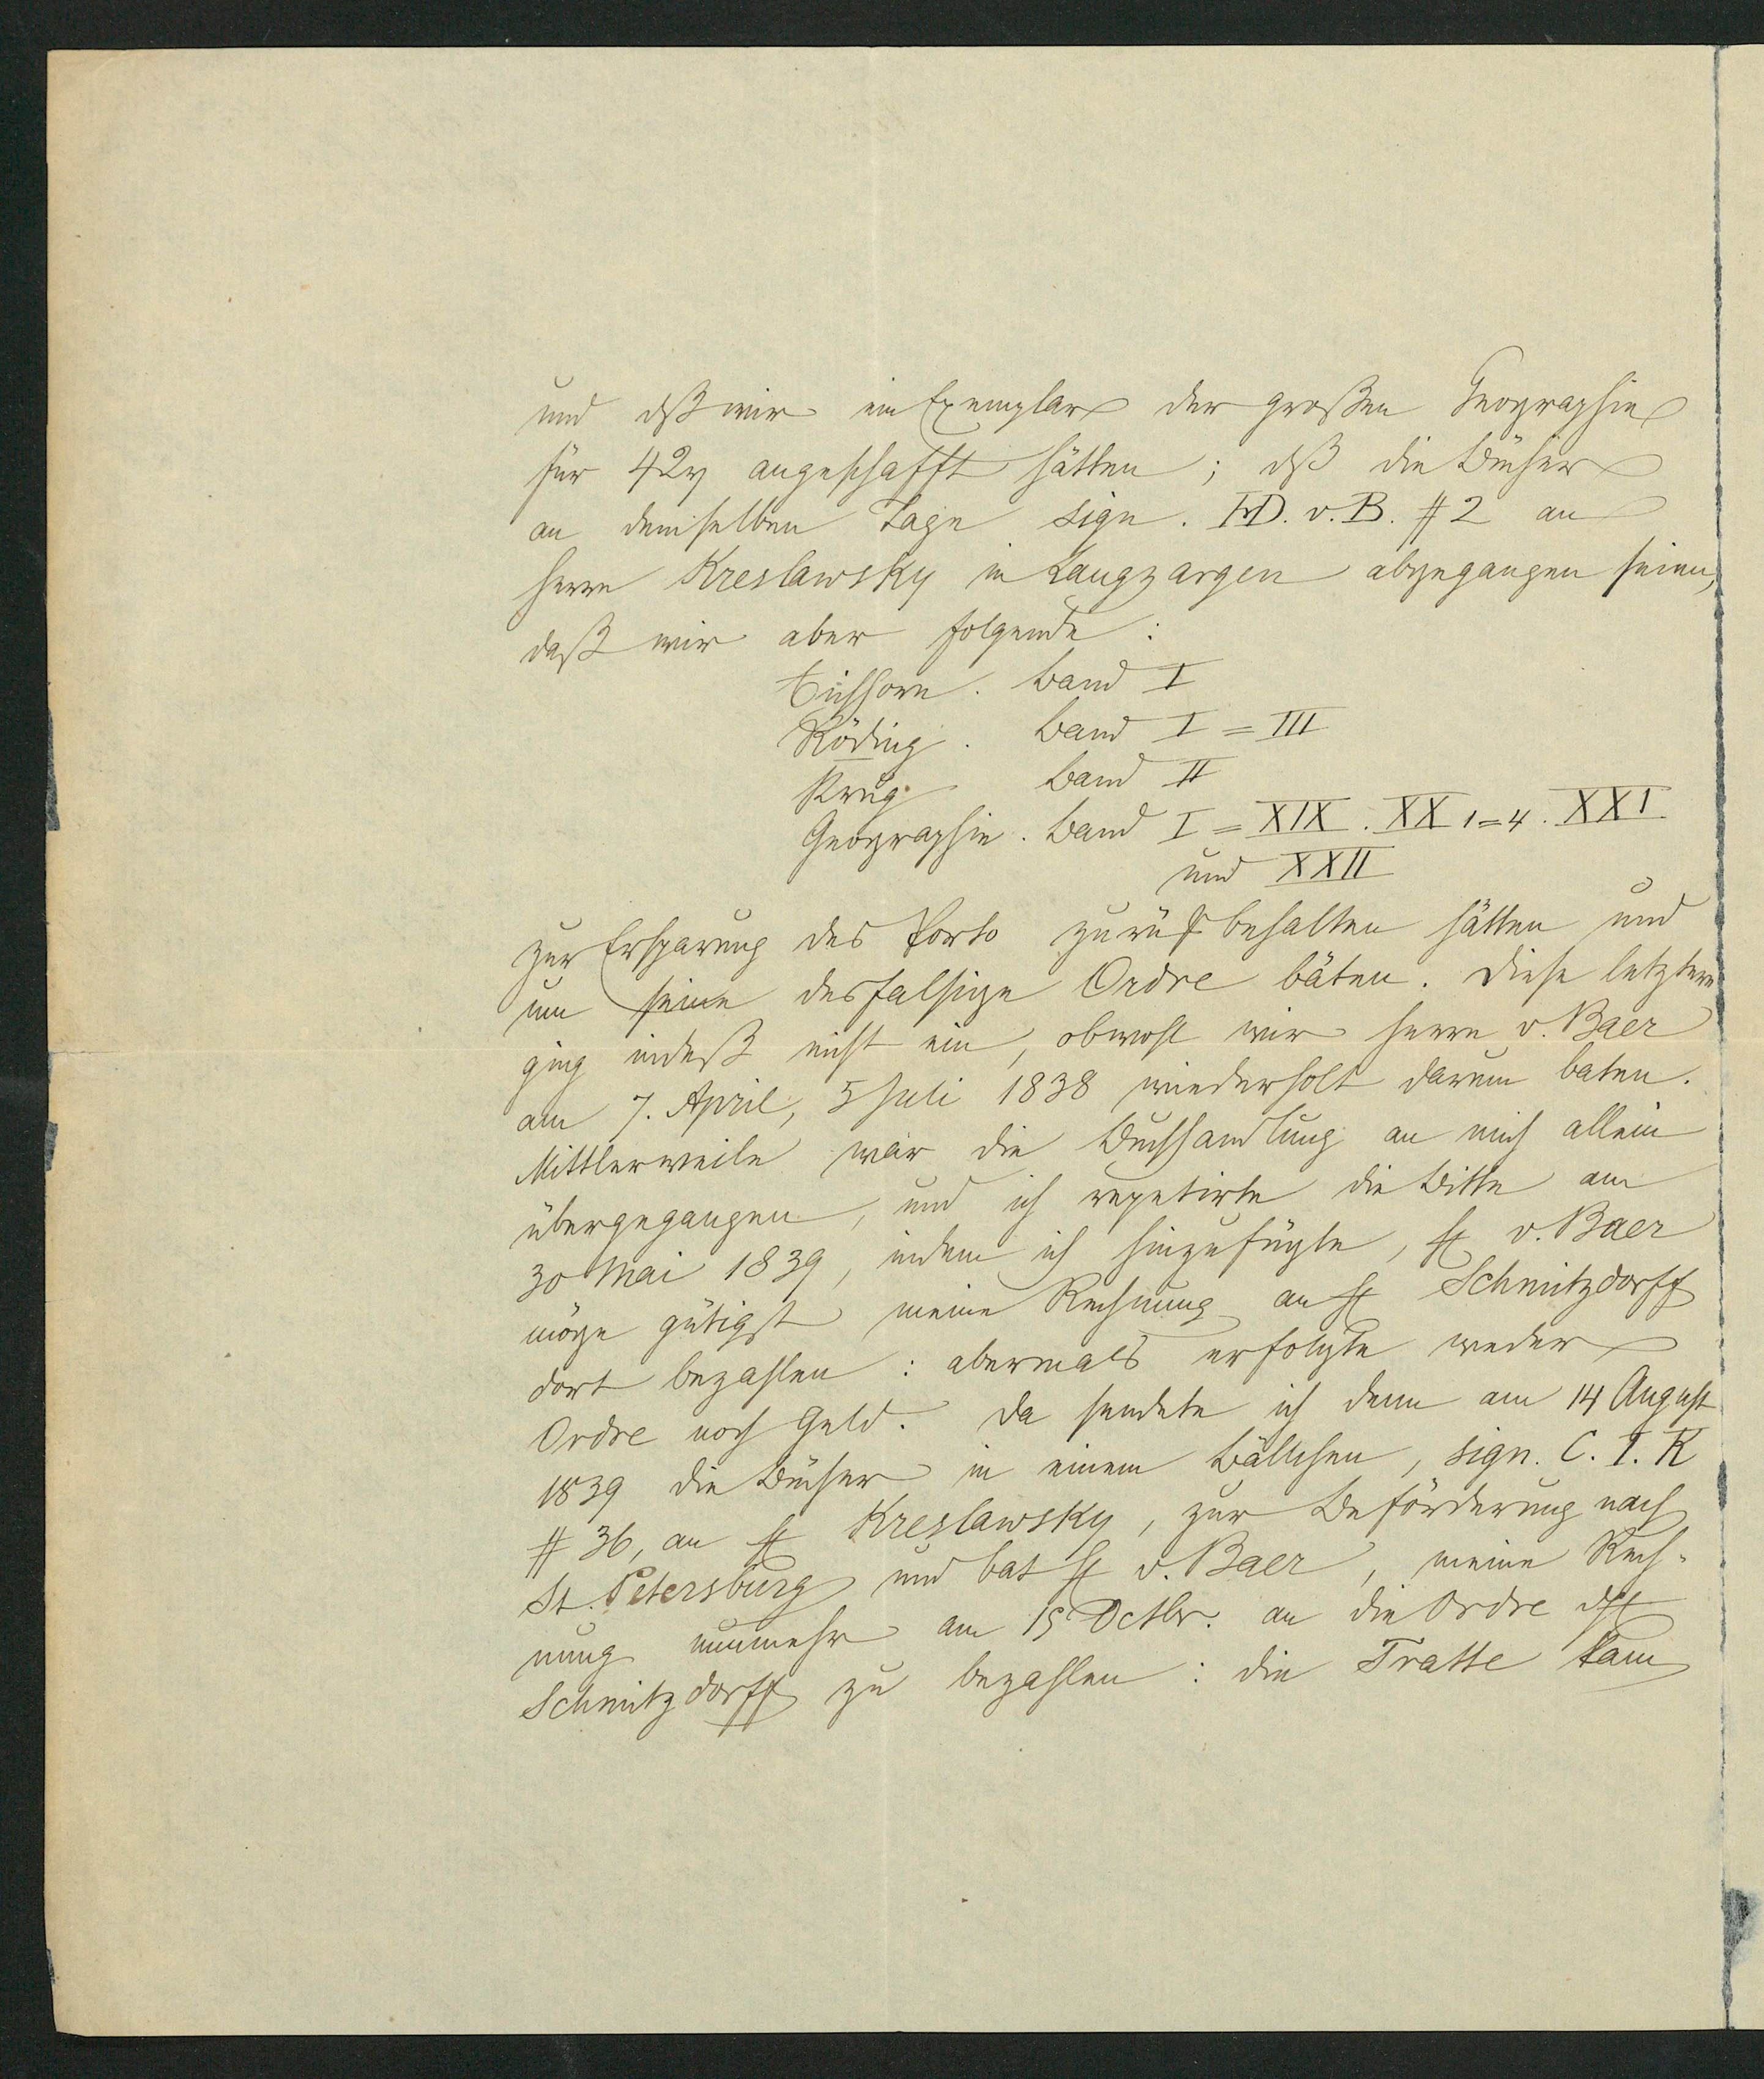 und dß wir ein Exemplar der großen Geographie
für 42 angeschafft hätten; dß die Bücher
an demselben Tage sign. HD. v. B. # 2 an
Herrn Kreslawsky in Laugzargen abgegangen seien,
daß wir aber folgende:
Eichhorn. Band I
Röding. Band I = III
Krug. Band II
Geographie. Band I = XIX. XX 1=4. XXI
und XXII
zur Ersparung des Porto zurückbehalten hätten und
um seine desfalsige Ordre bäten. Diese letztere
ging indeß nicht ein, obwohl wir Herrn v. Baer
am 7. April, 5 Juli 1838 wiederholt darum baten.
Mittlerweile war die Buchhandlung an mich allein
übergegangen, und ich repetirte die Bitte am
30 Mai 1839, indem ich hinzufügte, H v. Baer
möge gütigst meine Rechnung an H Schmitzdorff
dort bezahlen: abermals erfolgte weder
Ordre noch Geld. Da sendete ich denn am 14 August
1839 die Bücher in einem Bällchen, sign. C. T. K
# 36, an H Kreslawsky, zur Beförderung nach
St. Petersburg und bat H v. Baer, meine Rech-
nung nunmehr am 15 Octbr. an die Ordre
Schmitzdorff zu bezahlen: die Tratte kam